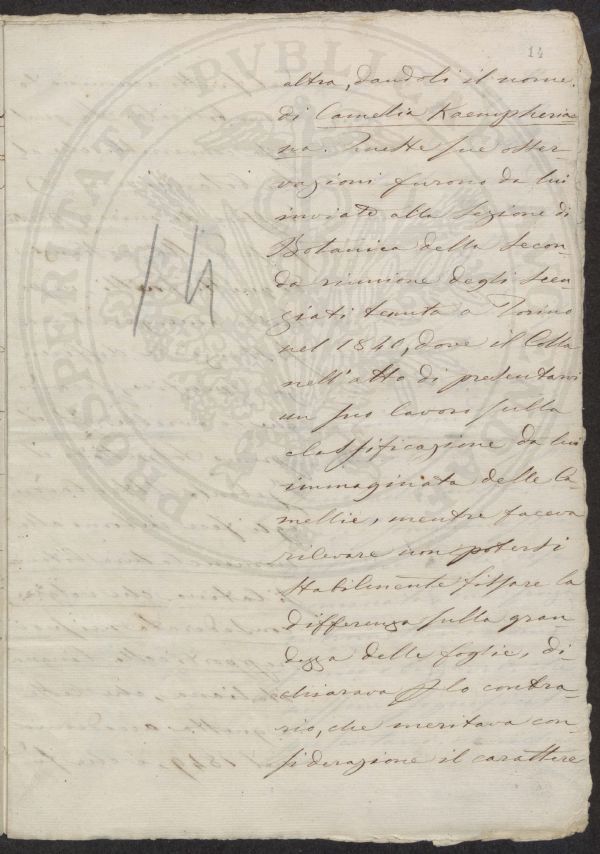 14
altra, dandoli il nome
di Camelia Kaempheria=
na. Queste sue osser-
vazioni furono da lui
inviate alla Sezione di
Botanica della secon-
da riunione degli Scen-
ziati tenuta a Torino
nel 1840, dove il Colla
nell'atto di presentarvi
un suo lavoro sulla
classificazione da lui
immaginata delle Ca-
mellie, mentre faceva
rilevare non potersi
stabilmente fissare la
differenza sulla gran
dezza delle foglie, di-
chiarava p lo contra-
rio, che meritava con-
siderazione il carattere
14
PROSPERITATI PVBLICAE